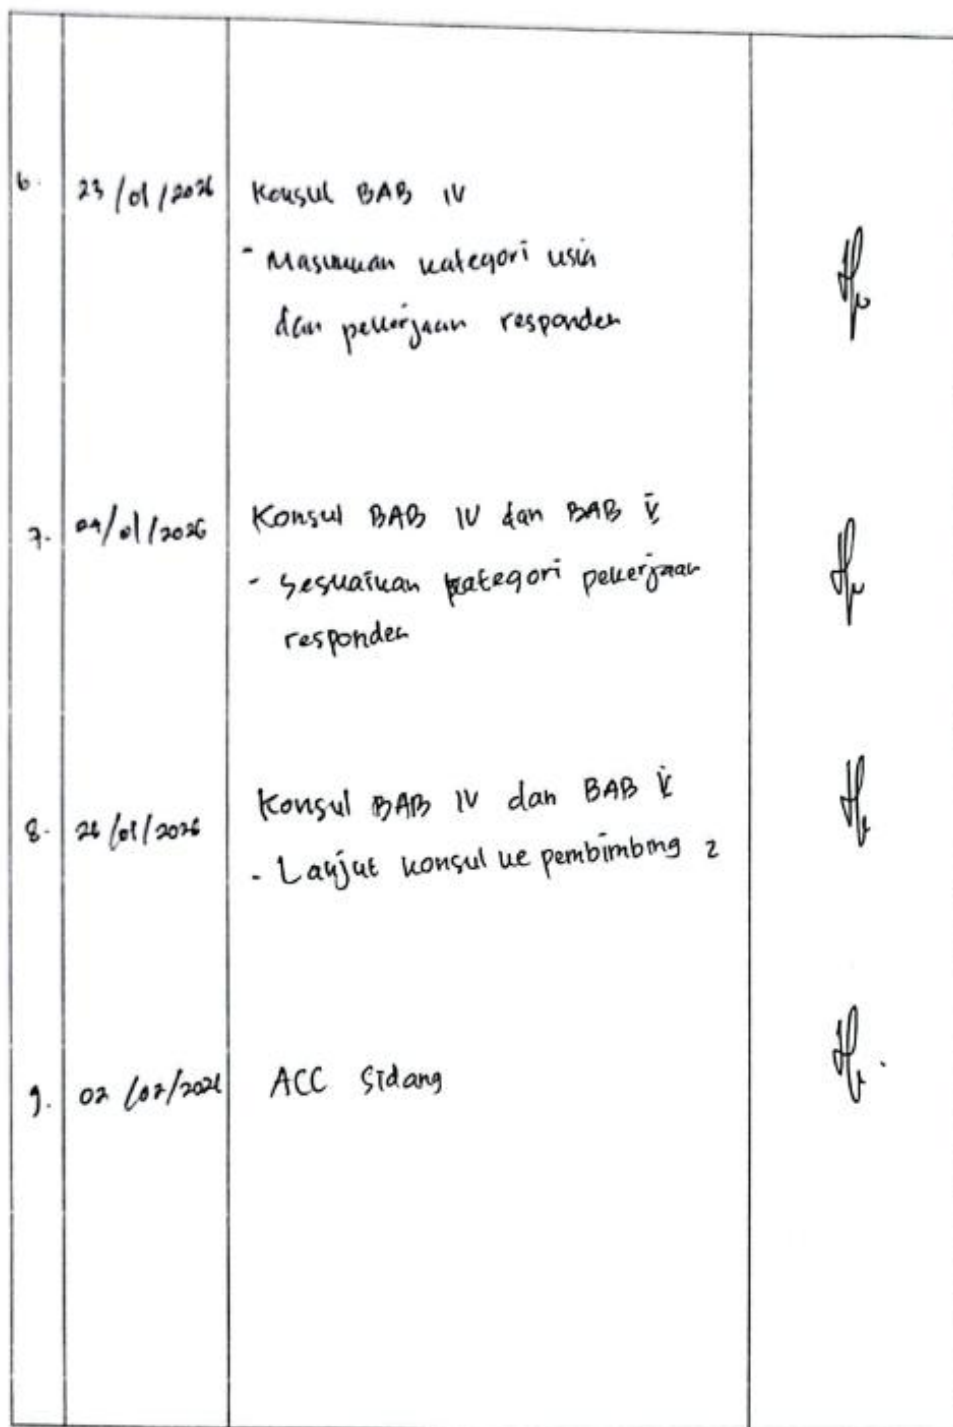 6. 23/01/2026 Konsul BAB IV
- Masukkan kategori usia
dan pekerjaan responden
7. 04/01/2026 Konsul BAB IV dan BAB V
- Sesuaikan kategori pekerjaan
responden
8. 26/01/2026 Konsul BAB IV dan BAB V
- Lanjut konsul ke pembimbing 2
9. 02/02/2026 ACC Sidang